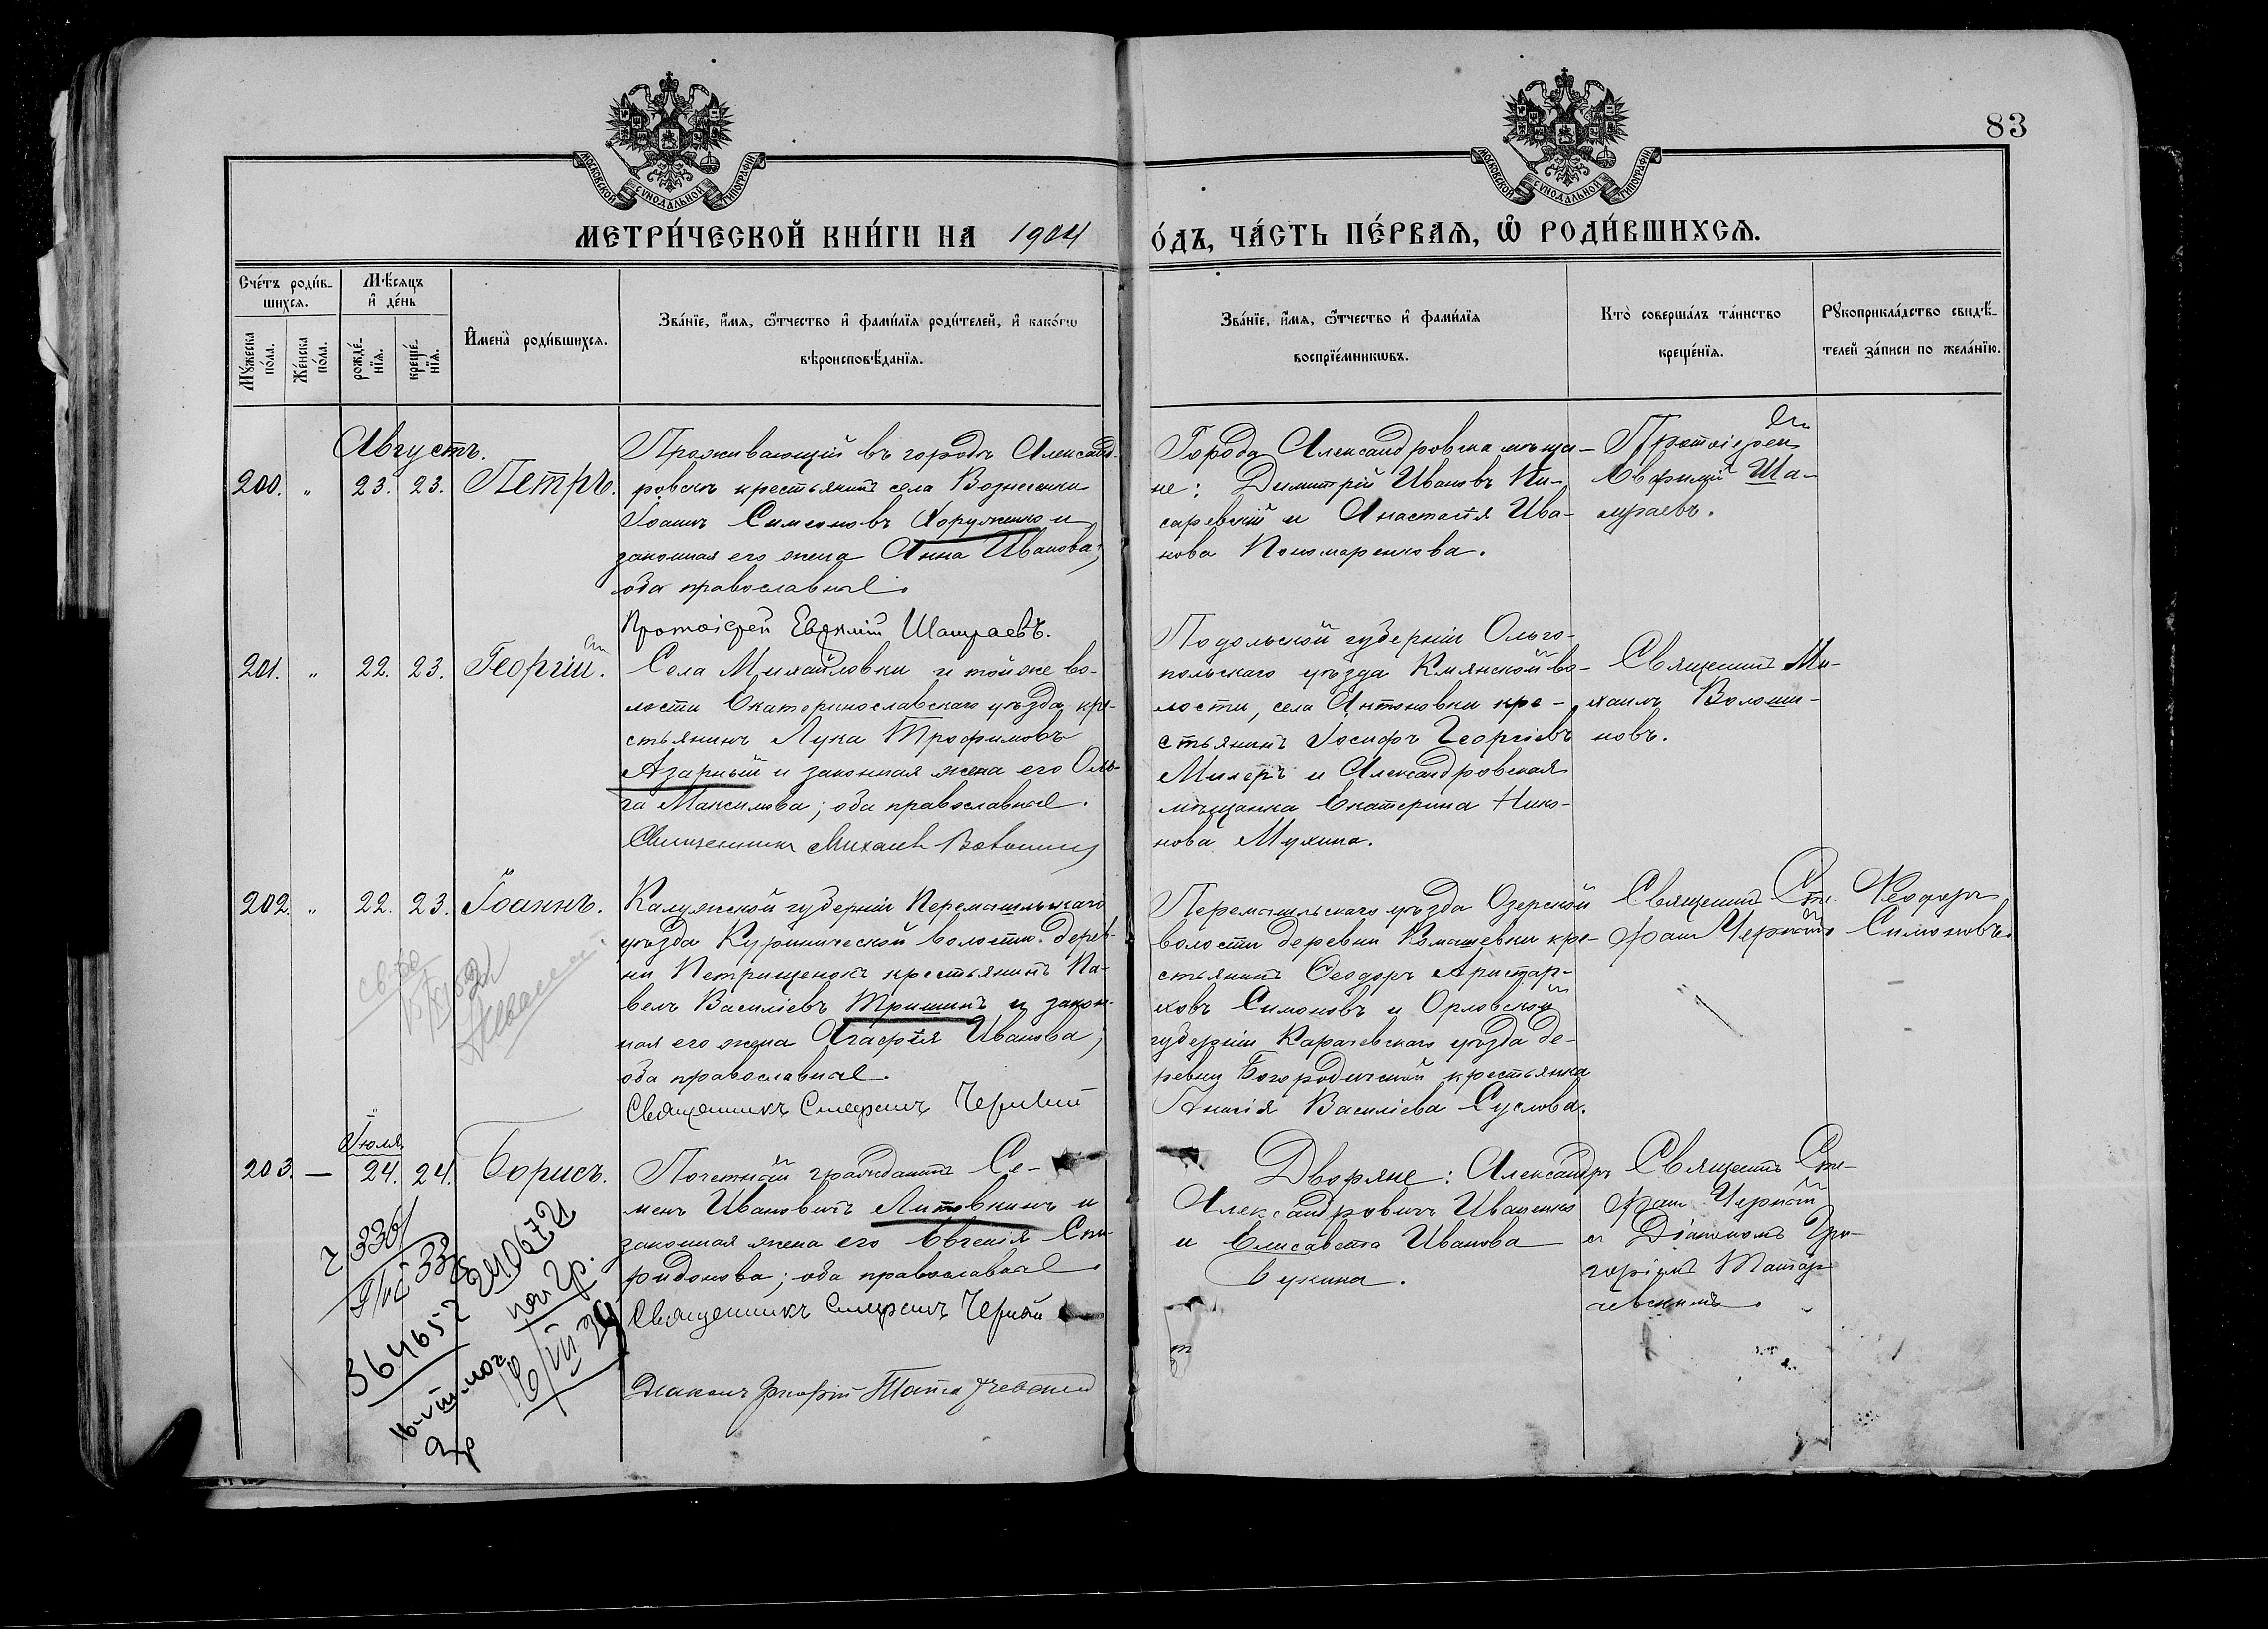 83
МОСКОВСКОЙ СѴНОДАЛЬНОЙ ТИПОГРАФІИ
МОСКОВСКОЙ СѴНОДАЛЬНОЙ ТИПОГРАФІИ
МЕТРИ́ЧЕСКОЙ КНИ́ГИ НА 1904
О́ДЪ, ЧА́СТЬ ПЕ́РВАѦ, Ѡ҆ РОДИ́ВШИХСѦ.
Сче́тъ роди́в-
шихсѧ.
Мꙋ́жеска по́ла.
Же́нска по́ла.
Мѣ́сѧцъ
и҆ де́нь
рожде́-
нїѧ.
креще́-
нїѧ.
И҆мена̀ роди́вшихсѧ.
Зва́нїе, и҆́мѧ, ѻ҆́тчество и҆ фами́лїѧ роди́телей, и҆ како́гѡ
вѣроисповѣ́данїѧ.
Зва́нїе, и҆́мѧ, ѻ҆́тчество и҆ фами́лїѧ
воспрїе́мникѡвъ.
Кто̀ соверша́лъ та́инство
креще́нїѧ.
Рꙋкоприкла́дство свидѣ́-
телей за́писи по жела́нїю.
Августъ.
200. „ 23. 23. Петръ.
Проживающій въ городѣ Александ-
ровскѣ крестьянинъ села Вознесенки
Іоаннъ Симеоновъ Хорунженко и
законная его жена Анна Иванова;
оба православные.
Протоіерей Евѳимій Шамраевъ.
Города Александровска мѣща-
не: Димитрій Ивановъ Пи-
саревскій и Анастасія Ива-
нова Пономаренкова.
Протоіерей
Евфимій Ша-
мраевъ.
201. „ 22. 23. Георгій.
Села Михайловки и тойже во-
лости Екатеринославскаго уѣзда кре-
стьянинъ Лука Трофимовъ
Азарный и законная жена его Оль-
га Максимова; оба православные.
Священникъ Михаилъ Волошинъ
Подольской губерніи Ольго-
польскаго уѣзда Кміянской во-
лости, села Антоновки кре-
стьянинъ Іосифъ Георгіевъ
Милеръ и Александровская
мѣщанка Екатерина Нико-
нова Мухина.
Священникъ Ми-
хаилъ Волоши-
новъ.
202. „ 22. 23. Іоаннъ.
Калужской губерніи Перемышльскаго
уѣзда Куринической волости дерев-
ни Петрищенокъ крестьянинъ Па-
велъ Василіевъ Тришинъ и закон-
ная его жена Агафія Иванова;
оба православные.
Священникъ Стефанъ Черный
Перемышльскаго уѣзда Озерской
волости деревни Ромашевки кре-
стьянинъ Ѳеодоръ Аристар-
ховъ Симоновъ и Орловской
губерніи Карачевскаго уѣзда де-
ревни Богородической крестьянка
Василіева Суслова.
Священникъ Сте-
фанъ Черный.
Ѳеодоръ
Симоновъ.
Іюля
203. — 24. 24. Борисъ.
Почетный гражданинъ Се-
менъ Ивановичъ Литовкинъ и
законная жена его Евгенія Спи-
ридонова; оба православные.
Священникъ Стефанъ Черный
Діаконъ Григорій
Дворяне: Александръ
Александровичъ Иваненко
и Елисавета Иванова
Букина.
Священникъ Сте-
фанъ Черный
и Діакономъ Гри-
горіемъ
364657
240672